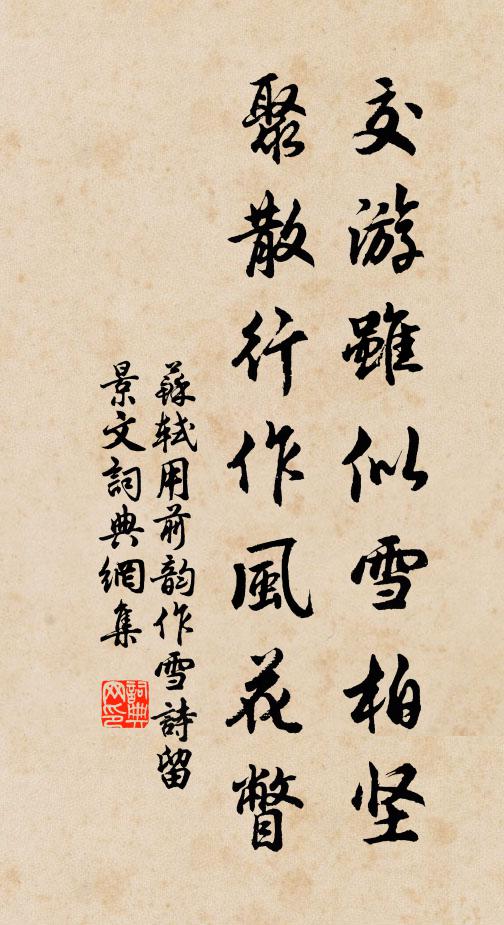 交游雖似雪柏坚
聚散行作風花瞥
蘇軾用前韵作雪詩留
景文詞典網集
詞典网印